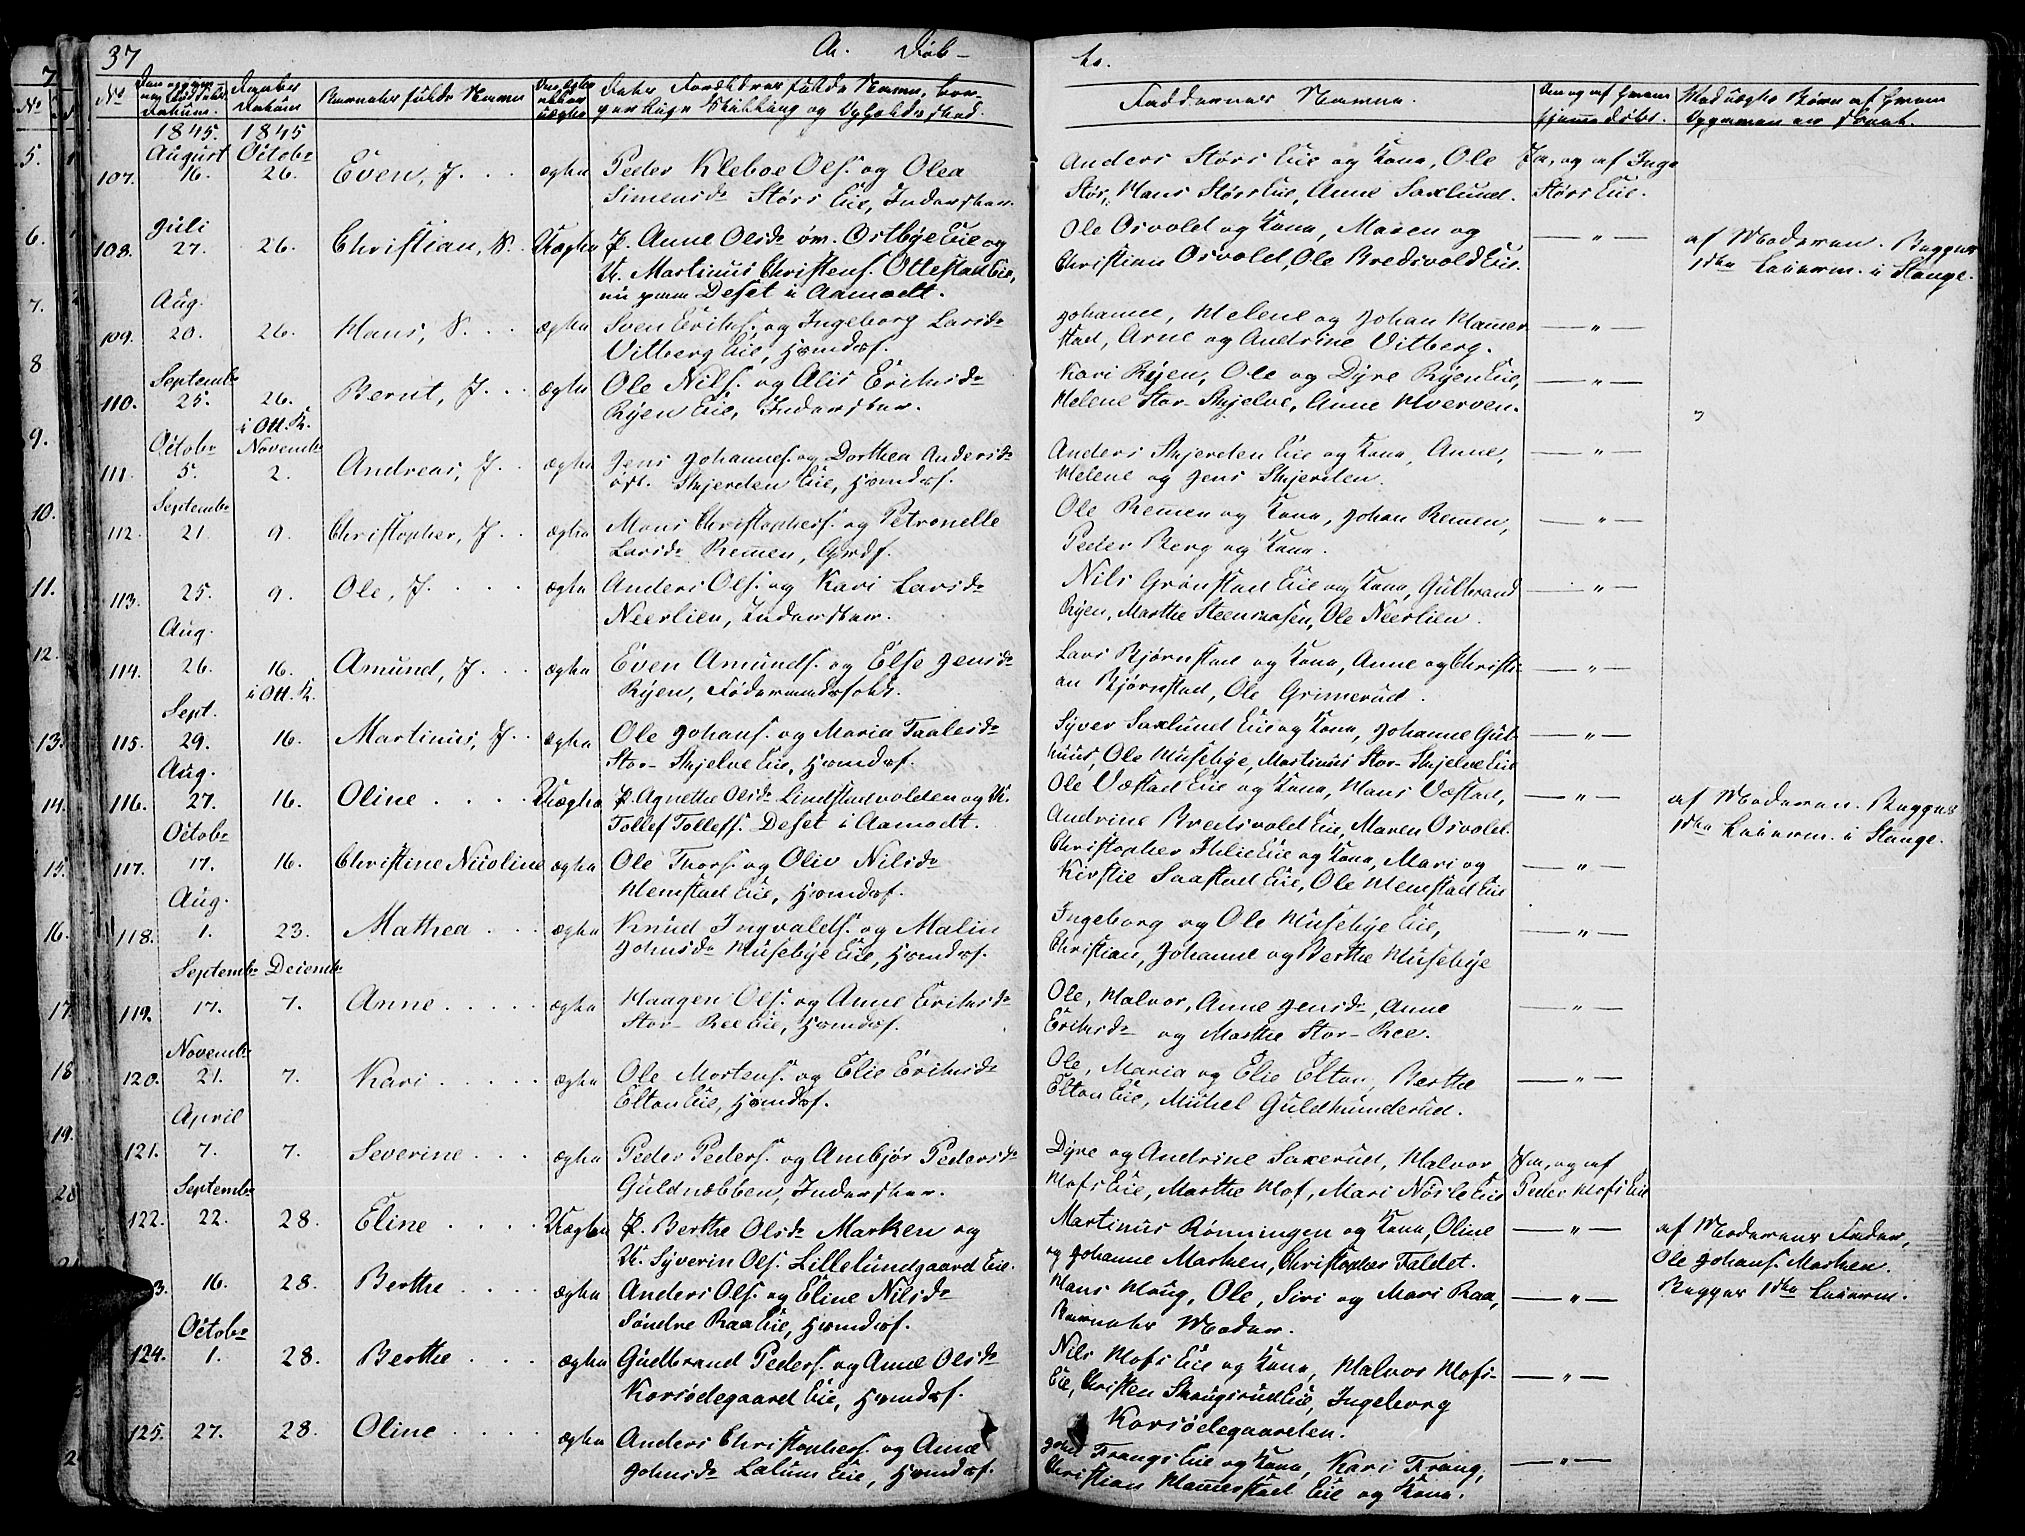 37
A. Døb-
te.
No
Daabs
Datum
Barnets fulde Navn
Faddernes Navne.
1845. 1845
107. August 16. Octobr 26. Even, J. ægte Peder Kleboe Ols. og Olea
Simensdr Størs Eie, Inderster.
Anders Størs Eie og Kone, Ole
Stør, Hans Størs Eie, Anne Saxlund.
Ja, og af Inge
Størs Eie.
108. Juli 27. 26. Christian, S. Uægte P. Anne Olsdr Ostbye Eie og
U. Martinus Christens. Ottestad Eie,
nu paa Deset i Aamodt.
Ole Osvold og Kone, Maren og
Christian Osvold, Ole Bredsvold Eie.
— " —
af Moderen. Begges
1ste Leierm. i Stange.
109. Aug. 20. 26. Hans, S. ægte Sven Eriks. og Ingeborg Larsdr
Vitberg Eie, Hmdsf.
Johanne, Helene og Johan Hammer-
stad, Arne og Andrine Vitberg.
— " —
110. Septembr 25. 26. i Ott. K. Bernt, J. ægte Ole Nils. og Alis Eriksdr
Ryen Eie, Inderster.
Kari Ryen, Ole og Dyre Ryen Eie,
Helene Stor-Skjelve, Anne Hverven.
— " —
111. Octobr 5. Novembr 2. Andreas, J. ægte Jens Johannes. og Dorthea Andersdr
ost. Skjerden Eie, Hmdsf.
Anders Skjerden Eie og Kone, Anne,
Helene og Jens Skjerden.
— " —
112. Septembr 21. 9. Christopher, J. ægte Hans Christophers. og Petronelle
Larsdr Remen, Grdf.
Ole Remen og Kone, Johan Remen,
Peder Berg og Kone.
— " —
113. 25. 9. Ole, J. ægte Anders Ols. og Kari Larsdr
Neerlien, Inderster.
Nils Grønstad Eie og Kone, Gulbrand
Ryen, Marthe Steensaasen, Ole Neerlien.
— " —
114. Aug. 26. 16. i Ott. K. Amund, J. ægte Even Amunds. og Else Jensdr
Ryen, Føderaadsfolk.
Lars Bjørnstad og Kone, Anne og Christi-
an Bjørnstad, Ole Grimerud.
— " —
115. Sept. 29. 16. Martinus, J. ægte Ole Johans. og Maria Taalesdr
Stor-Skjelve Eie, Hmdsf.
Syver Saxlund Eie og Kone, Johanne Gul-
huus, Ole Husebye, Martinus Stor-Skjelve Eie
— " —
116. Aug. 27. 16. Oline Uægte P. Agnethe Olsdr Lindstadvolden og U.
Tollef Tollefs. Deset i Aamodt.
Ole Væstad Eie og Kone, Hans Væstad,
Andrine Bredsvold Eie, Maren Osvold.
— " —
af Moderen. Begges
1ste Leierm. i Stange.
117. Octobr 17. 16. Christine Nicoline ægte Ole Thors. og Oliv Nilsdr
Hemstad Eie, Hmdsf.
Christopher Ihle Eie og Kone, Mari og
Kirstie Saastad Eie, Ole Hemstad Eie
— " —
118. Aug. 1. 23. Mathea ægte Knud Ingvalds. og Malin
Johnsdr Husebye Eie, Hmdsf.
Ingeborg og Ole Husebye Eie,
Christian, Johanne og Berthe Husebye
— " —
119. Septembr 17. Decembr 7. Anne ægte Haagen Ols. og Anne Eriksdr
Stor-Ree Eie, Hmdsf.
Ole, Halvor, Anne Jensdr, Anne
Eriksdr og Marthe Stor-Ree.
— " —
120. Novembr 21. 7. Kari ægte Ole Mortens. og Elie Eriksdr
Elton Eie, Hmdsf.
Ole, Maria og Elie Elton, Berthe
Elton Eie, Mikel Guldhunderud.
— " —
121. April 7. 7. Severine ægte Peder Peders. og Ambjør Pedersdr
Guldnæbben, Inderster.
Dyre og Andrine Saxerud, Halvor
Hofs Eie, Marthe Hof, Mari Nøsle Eie
Ja, og af
Peder Hofs Eie
122. Septembr 22. 28. Eline Uægte P. Berthe Olsdr Marken og
U. Syverin Ols. Lillelundgaard Eie.
Martinus Rønningen og Kone, Oline
og Johanne Marken, Christopher Faldet.
— " —
af Moderens Fader,
Ole Johans. Marken.
Begges 1ste Leierm.
3. 16. 28. Berthe ægte Anders Ols. og Eline Nilsdr
Søndre Raa Eie, Hmdsf.
Hans Houg, Ole, Siri og Mari Raa,
Barnets Moder.
— " —
124. Octobr 1. 28. Berthe ægte Gudbrand Peders. og Anne Olsdr
Korsødegaard Eie, Hmdsf.
Nils Hofs Eie og Kone, Halvor Hofs-
Eie, Christen Skaugsrud Eie, Ingeborg
Korsødegaarden.
— " —
125. 27. 28. Oline ægte Anders Christophers. og Anne
Johnsdr Lalum Eie, Hmdsf.
Frangs Eie og Kone, Kari Frang,
Christian Hammerstad Eie og Kone.
— " —